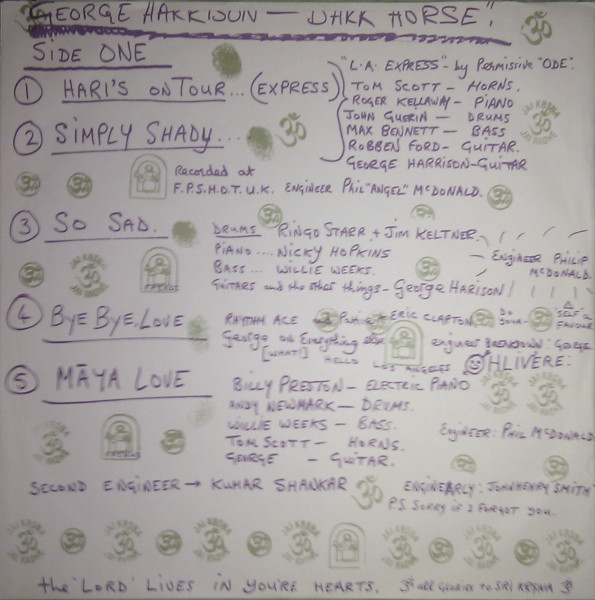 GEORGE HARRISON — DARK HORSE".
SIDE ONE
① HARI'S ON TOUR... (EXPRESS)
"L.A. EXPRESS" - by Permissive "ODE".
TOM SCOTT — HORNS.
ROGER KELLAWAY - PIANO
JOHN GUERIN — DRUMS
MAX BENNETT — BASS
ROBBEN FORD - GUITAR.
GEORGE HARRISON-GUITAR
② SIMPLY SHADY...
Recorded at
F.P.S.H.O.T. U.K. ENGINEER PHIL "ANGEL" McDONALD.
③ SO SAD.
DRUMS RINGO STARR + JIM KELTNER.
PIANO.... NICKY HOPKINS
BASS... WILLIE WEEKS.
GUITARS and the other things - George HARISON
ENGINEER PHILIP
McDONALD.
④ BYE BYE, LOVE
RHYTHM ACE and ERIC CLAPTON
George on Everything else
[WHAT!] HELLO LOS ANGELES
engineer BREKDOWN: GEORGE
OHLIVERE:
⑤ MĀYA LOVE
BILLY PRESTON — ELECTRIC PIANO
ANDY NEWMARK — DRUMS.
WILLIE WEEKS — BASS.
TOM SCOTT — HORNS.
GEORGE — GUITAR.
ENGINEER: PHIL McDONALD
SECOND ENGINEER → KUMAR SHANKAR
ENGINEARLY: JOHNHENRY SMITH
P.S. SORRY IF I FORGOT YOU.
JAI KRSNA ॐ JAI RADHE
the 'LORD' LIVES IN YOU'RE HEARTS. ॐ all Glories to SRI KRSNA ॐ